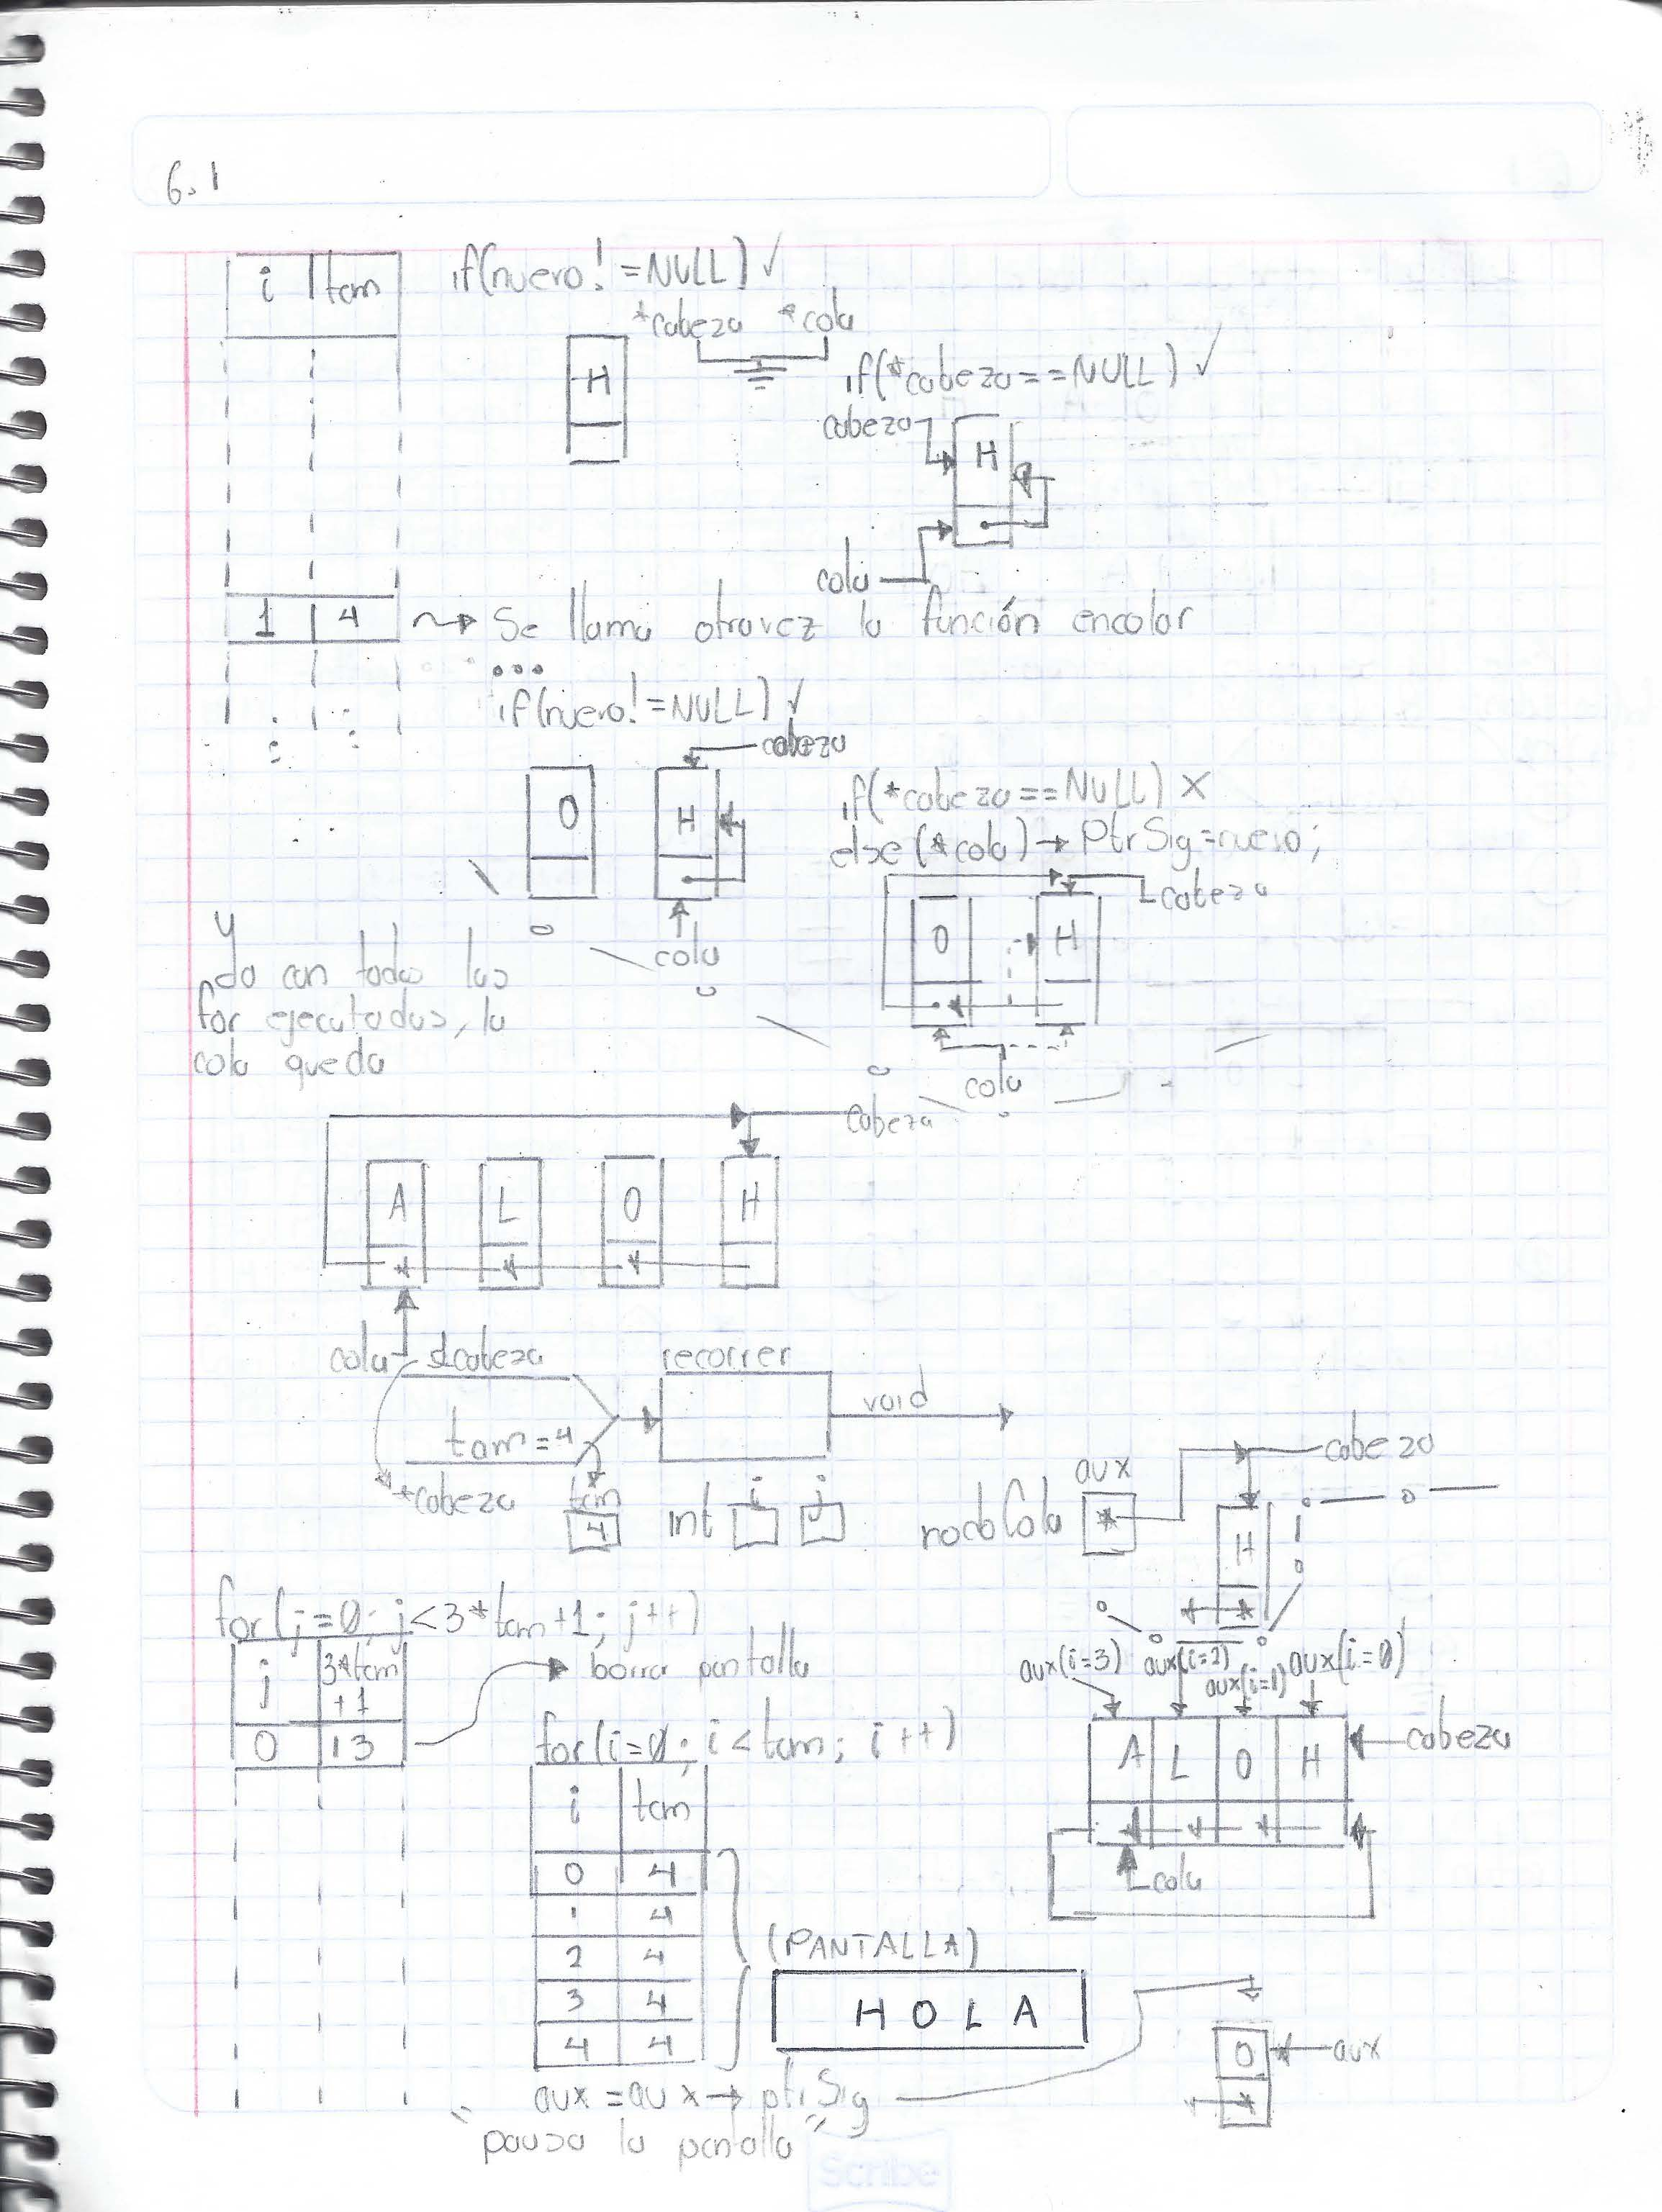 6.1
i tam
if(nuevo!=NULL) ✓
*cabeza *cola
H
if(*cabeza==NULL) ✓
cabeza
H
cola
1 4 → Se llama otravez la función encolar
...
if(nuevo!=NULL) ✓
cabeza
O H
cola
if(*cabeza==NULL) X
else (*cola)→PtrSig=nuevo;
cabeza
O H
cola
Ya con todos los
for ejecutados, la
cola queda
cabeza
A L O H
cola
&cabeza
tam=4
recorrer
void
*cabeza
tam
4
int i j
nodoCola
aux
*
cabeza
H
*
for(j=0; j<3*tam+1; j++)
j 3*tam+1
0 13
borra pantalla
for(i=0; i<tam; i++)
i tam
0 4
1 4
2 4
3 4
4 4
aux(i=3) aux(i=2) aux(i=1) aux(i=0)
A L O H
cabeza
cola
(PANTALLA)
H O L A
aux=aux→ptrSig
"pausa la pantalla"
O
*
aux
Scribe